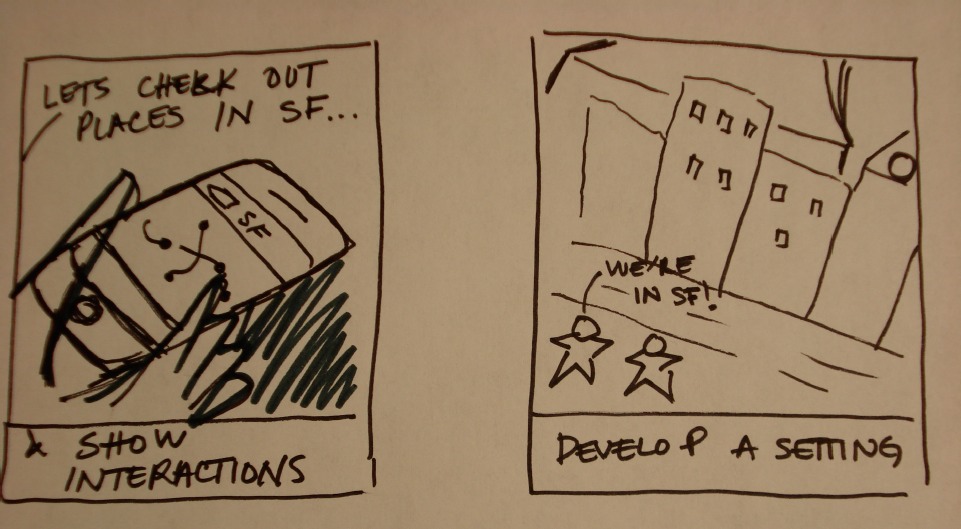 LETS CHECK OUT
PLACES IN SF...
SF
* SHOW
INTERACTIONS
WE'RE
IN SF!
DEVELOP A SETTING